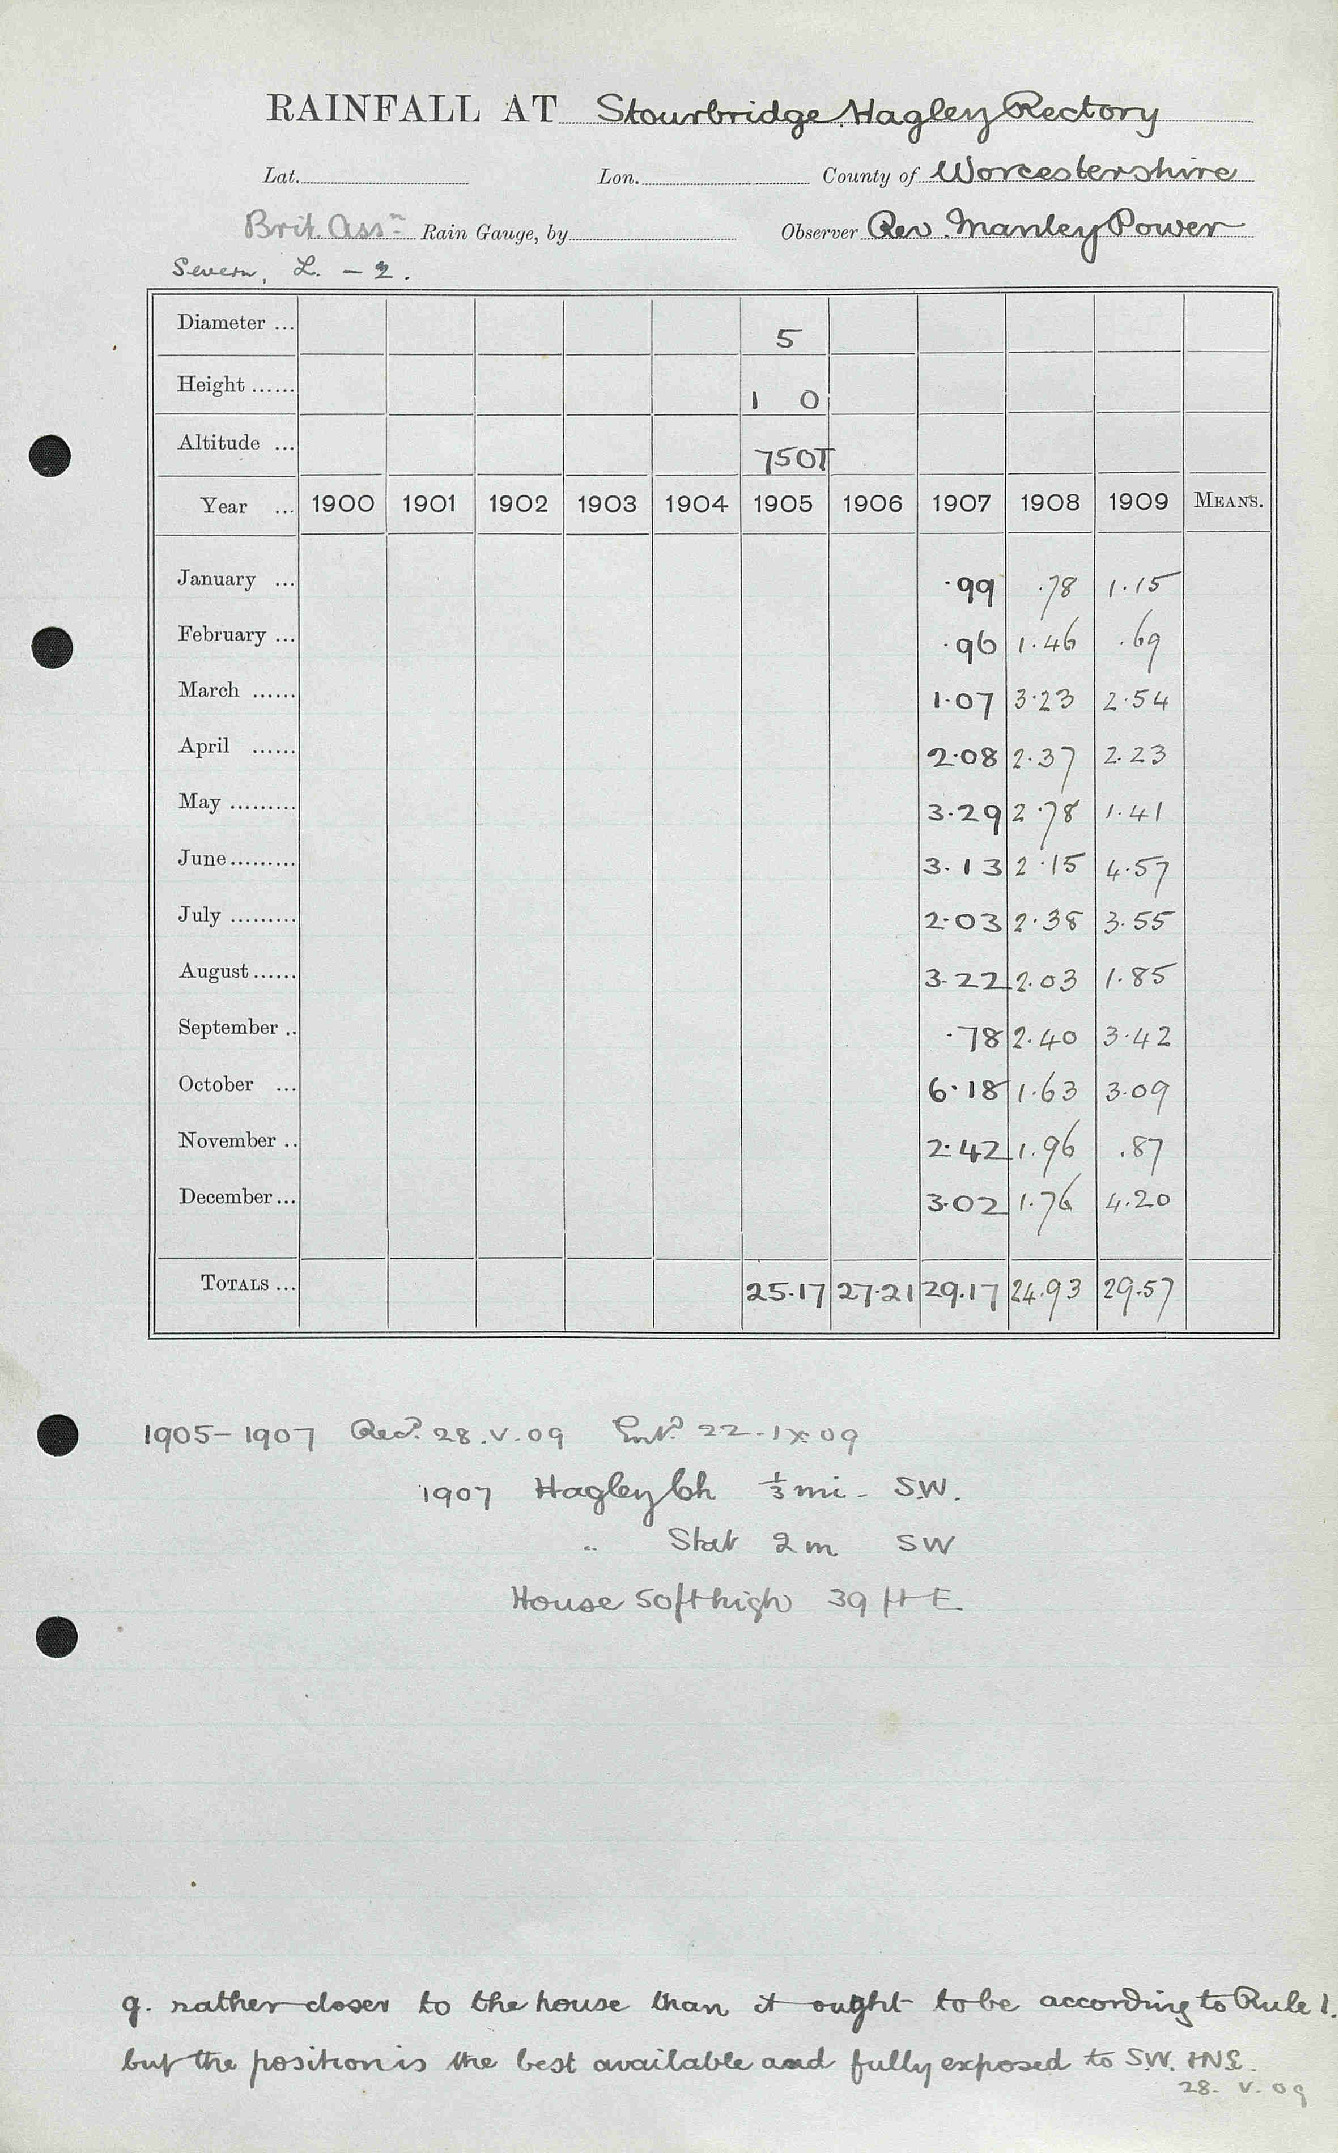 RAINFALL AT Stourbridge. Hagley Rectory
Lat. Lon. County of Worcestershire
Brit. Assn Rain Gauge, by Observer Rev. Manley Power
Severn, L. - 2.
Diameter ... 5
Height ...... 1 0
Altitude ... 750T
Year ... 1900 1901 1902 1903 1904 1905 1906 1907 1908 1909 MEANS.
January ... .99 .78 1.15
February ... .96 1.46 .69
March ...... 1.07 3.23 2.54
April ...... 2.08 2.37 2.23
May ......... 3.29 2.78 1.41
June ......... 3.13 2.15 4.57
July ......... 2.03 2.38 3.55
August ...... 3.22 2.03 1.85
September .. .78 2.40 3.42
October ... 6.18 1.63 3.09
November .. 2.42 1.96 .87
December ... 3.02 1.76 4.20
TOTALS ... 25.17 27.21 29.17 24.93 29.57
1905-1907 Recd. 28.V.09 Entd. 22.IX.09
1907 Hagley Ch 1/3 mi - SW.
" Stat 2m SW
House 50ft high 39 ft E.
g. rather closer to the house than it ought to be according to Rule 1.
but the position is the best available and fully exposed to SW. + NE.
28. V. 09